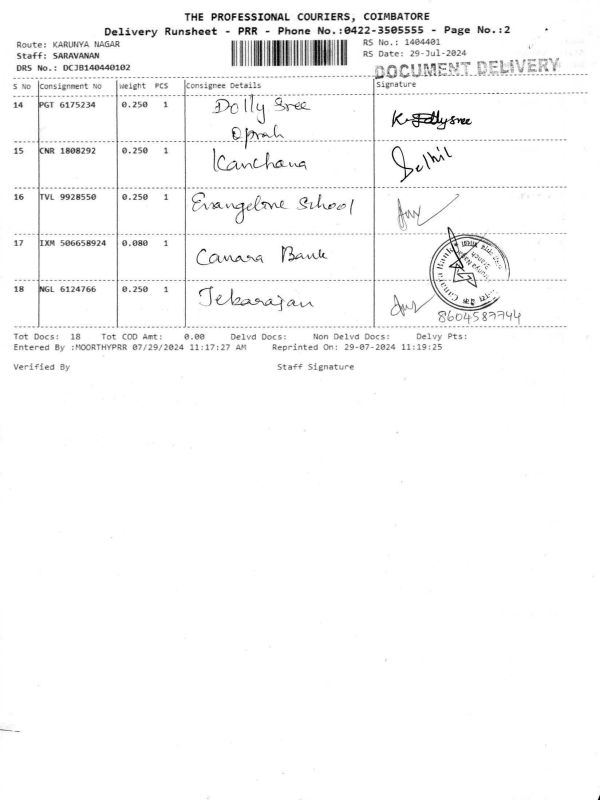 THE PROFESSIONAL COURIERS, COIMBATORE
Delivery Runsheet - PRR - Phone No.:0422-3505555 - Page No.:2
Route: KARUNYA NAGAR RS No.: 1404401
Staff: SARAVANAN RS Date: 29-Jul-2024
DRS No.: DCJB140440102 DOCUMENT DELIVERY
S No Consignment No Weight PCS Consignee Details Signature
14 PGT 6175234 0.250 1 Dolly Sree
Oprah
15 CNR 1808292 0.250 1 Kanchana
16 TVL 9928550 0.250 1 Evangeline School
17 IXM 506658924 0.080 1 Canara Bank
Canara Bank
18 NGL 6124766 0.250 1 Jekarajan
8604587744
Tot Docs: 18 Tot COD Amt: 0.00 Delvd Docs: Non Delvd Docs: Delvy Pts:
Entered By :MOORTHYPRR 07/29/2024 11:17:27 AM Reprinted On: 29-07-2024 11:19:25
Verified By Staff Signature